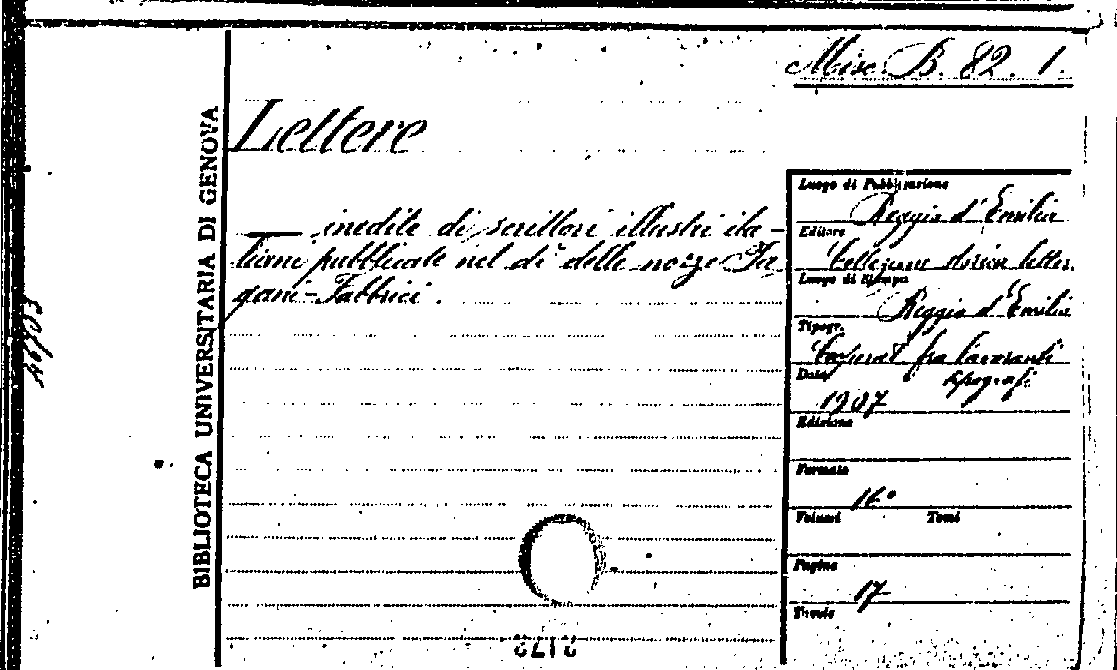 Misc. B. 82. 1.
Lettere
— inedite di scrittori illustri ita-
liani pubblicate nel dì delle nozze Fa
gani-Fabbrici.
BIBLIOTECA UNIVERSITARIA DI GENOVA
Luogo di Pubblicazione
Reggio d'Emilia
Editore
Collezione storica letter.
Luogo di Stampa
Reggio d'Emilia
Tipogr.
Cooperat fra lavoranti
tipografi
Data
1907
Edizione
Formato
16°
Volumi Tomi
Pagine
17
Tavole